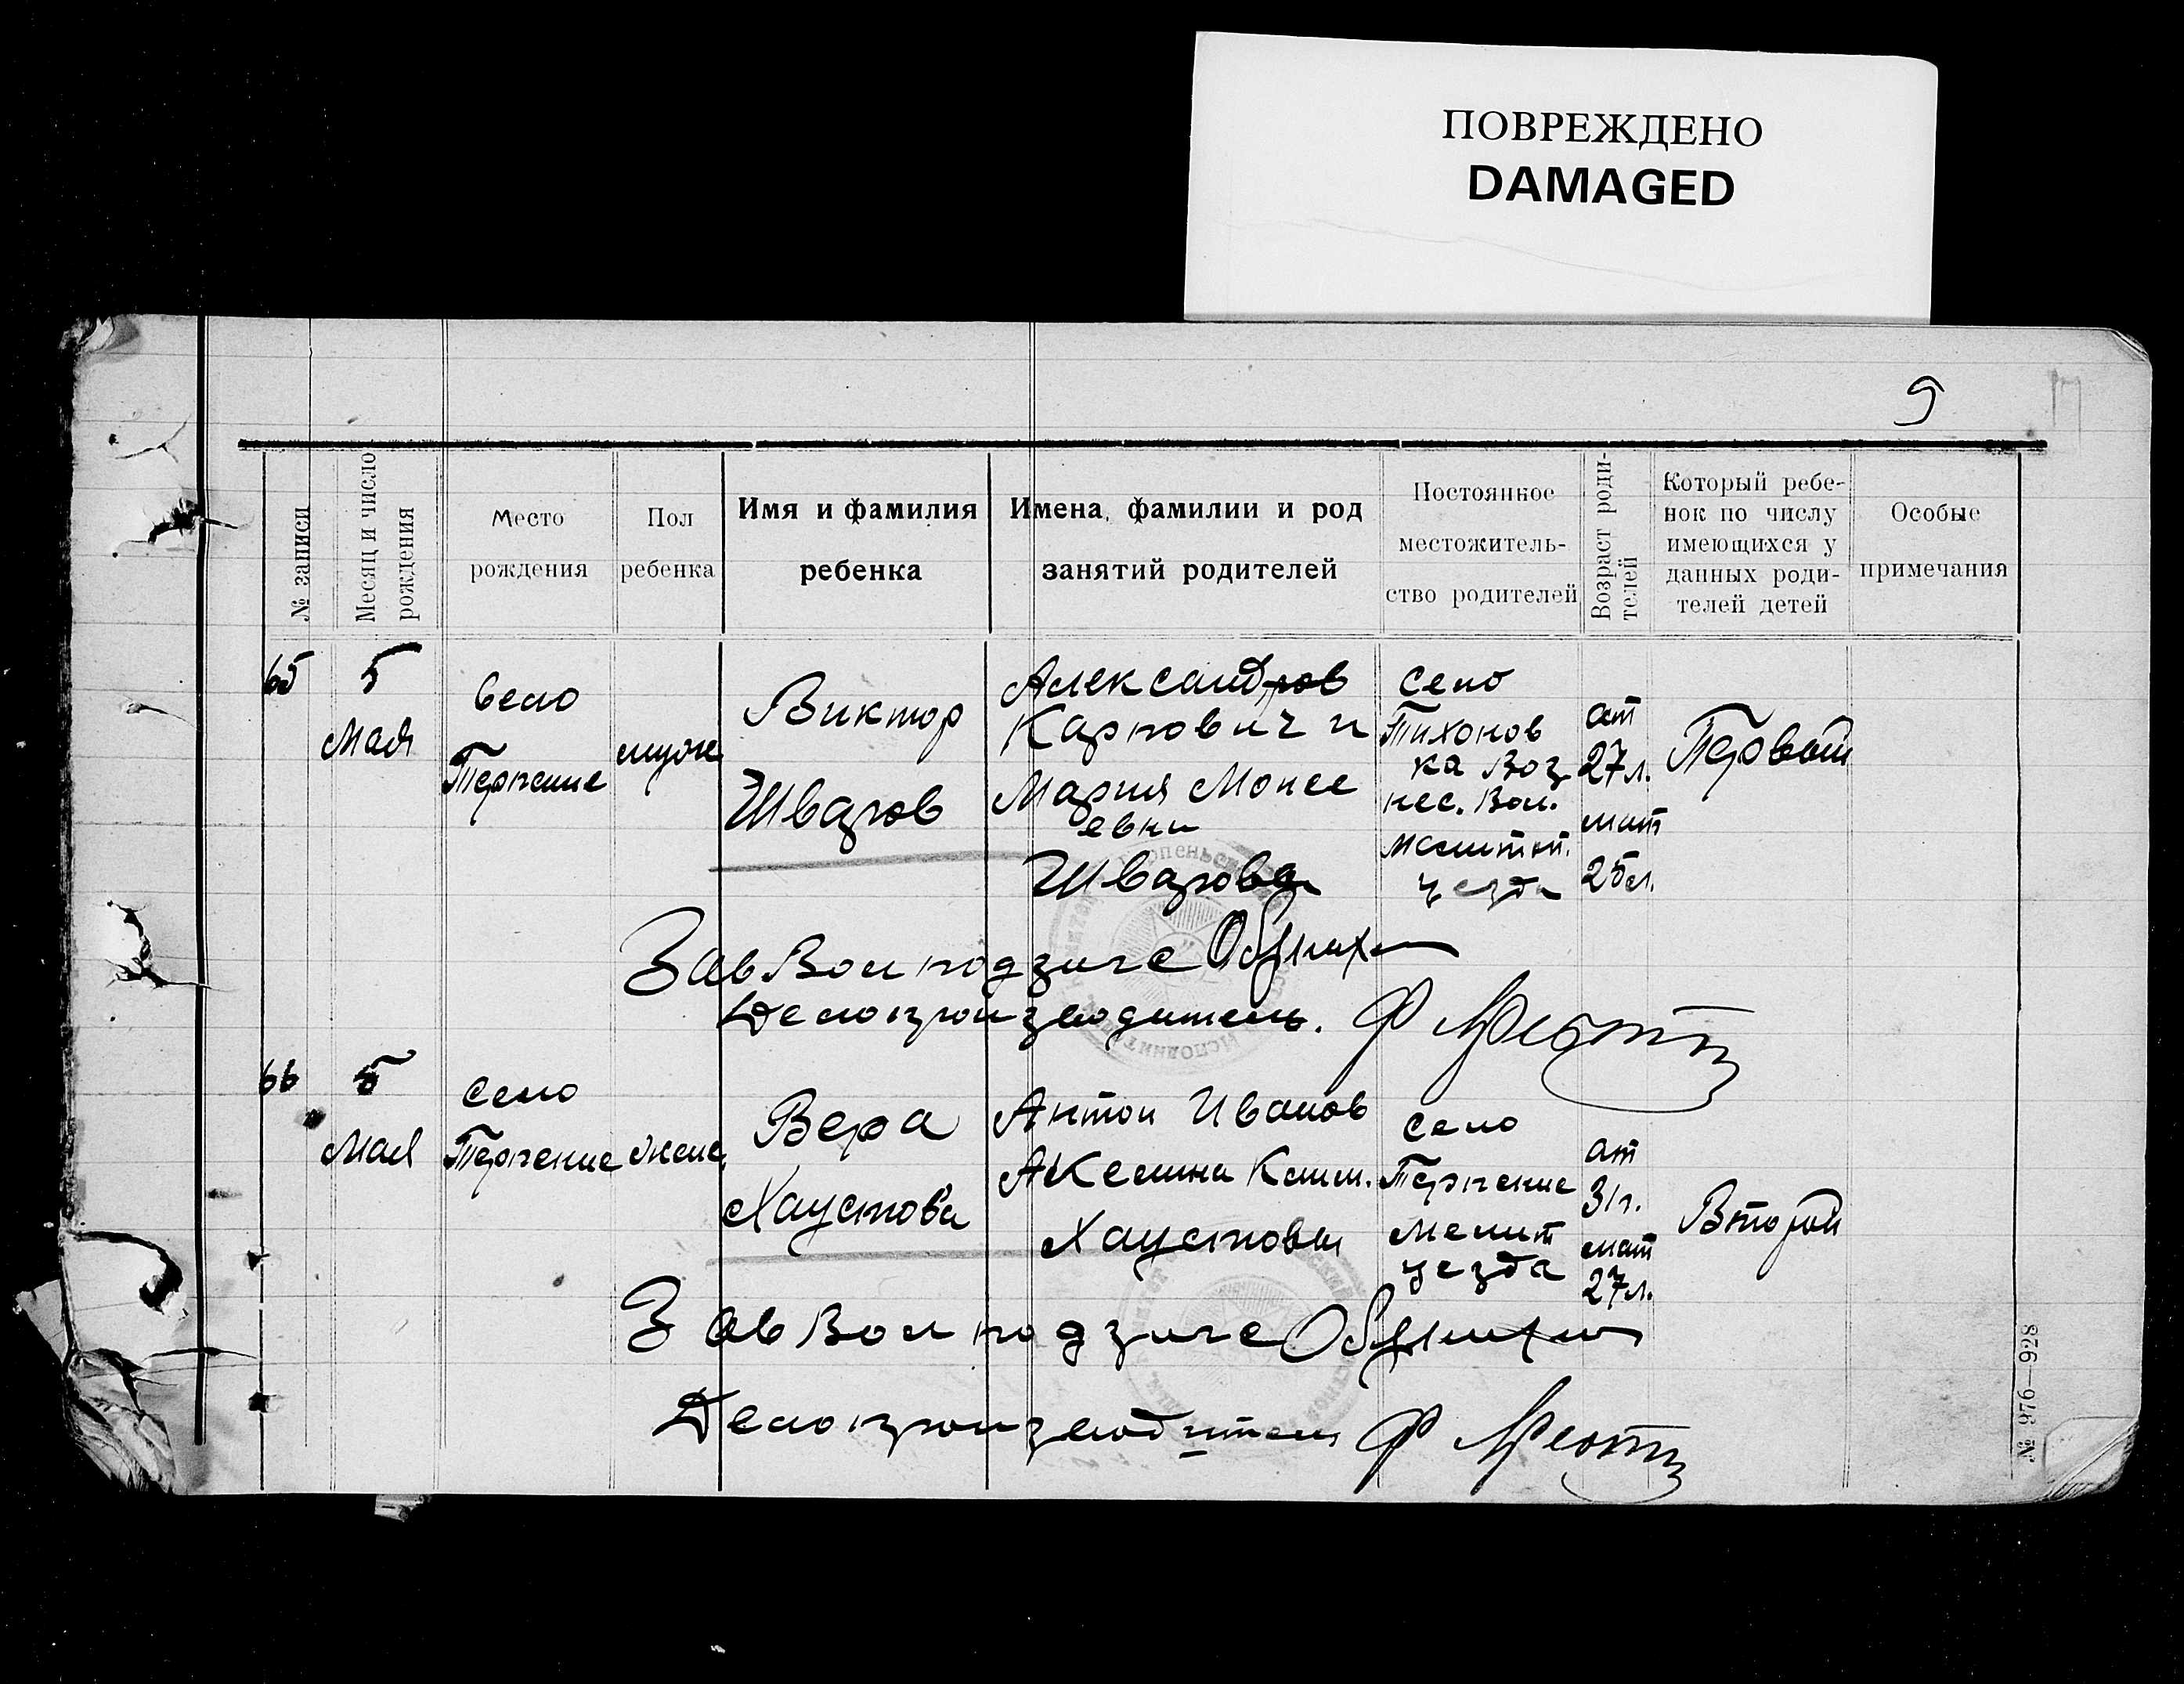 ПОВРЕЖДЕНО
DAMAGED
9
№ записи
Месяц и число рождения
Место рождения
Пол ребенка
Имя и фамилия ребенка
Имена, фамилии и род занятий родителей
Постоянное местожитель-
ство родителей
Возраст роди-
телей
Который ребе-
нок по числу
имеющихся у
данных роди-
телей детей
Особые примечания
65
5
Мая
Село
Терпение
муж
Виктор
Шваров
Александров
Карпович и
Мария Моисе
евна
Шварова
село
Тихонов
ка Воз
нес. Вол.
Мелитоп.
уезда
от
27 л.
мат
25 л.
Первый
Зав Вол подзагс
Делопроизводитель.
66
5
Мая
село
Терпение
женс
Вера
Хаустова
Антон Иванов
Акелина Клим.
Хаустовы
село
Терпение
Мелит
уезда
от
31 г.
мат
27 л.
Второй
Зав Вол подзагс
Делопроизводитель
№ 976—928